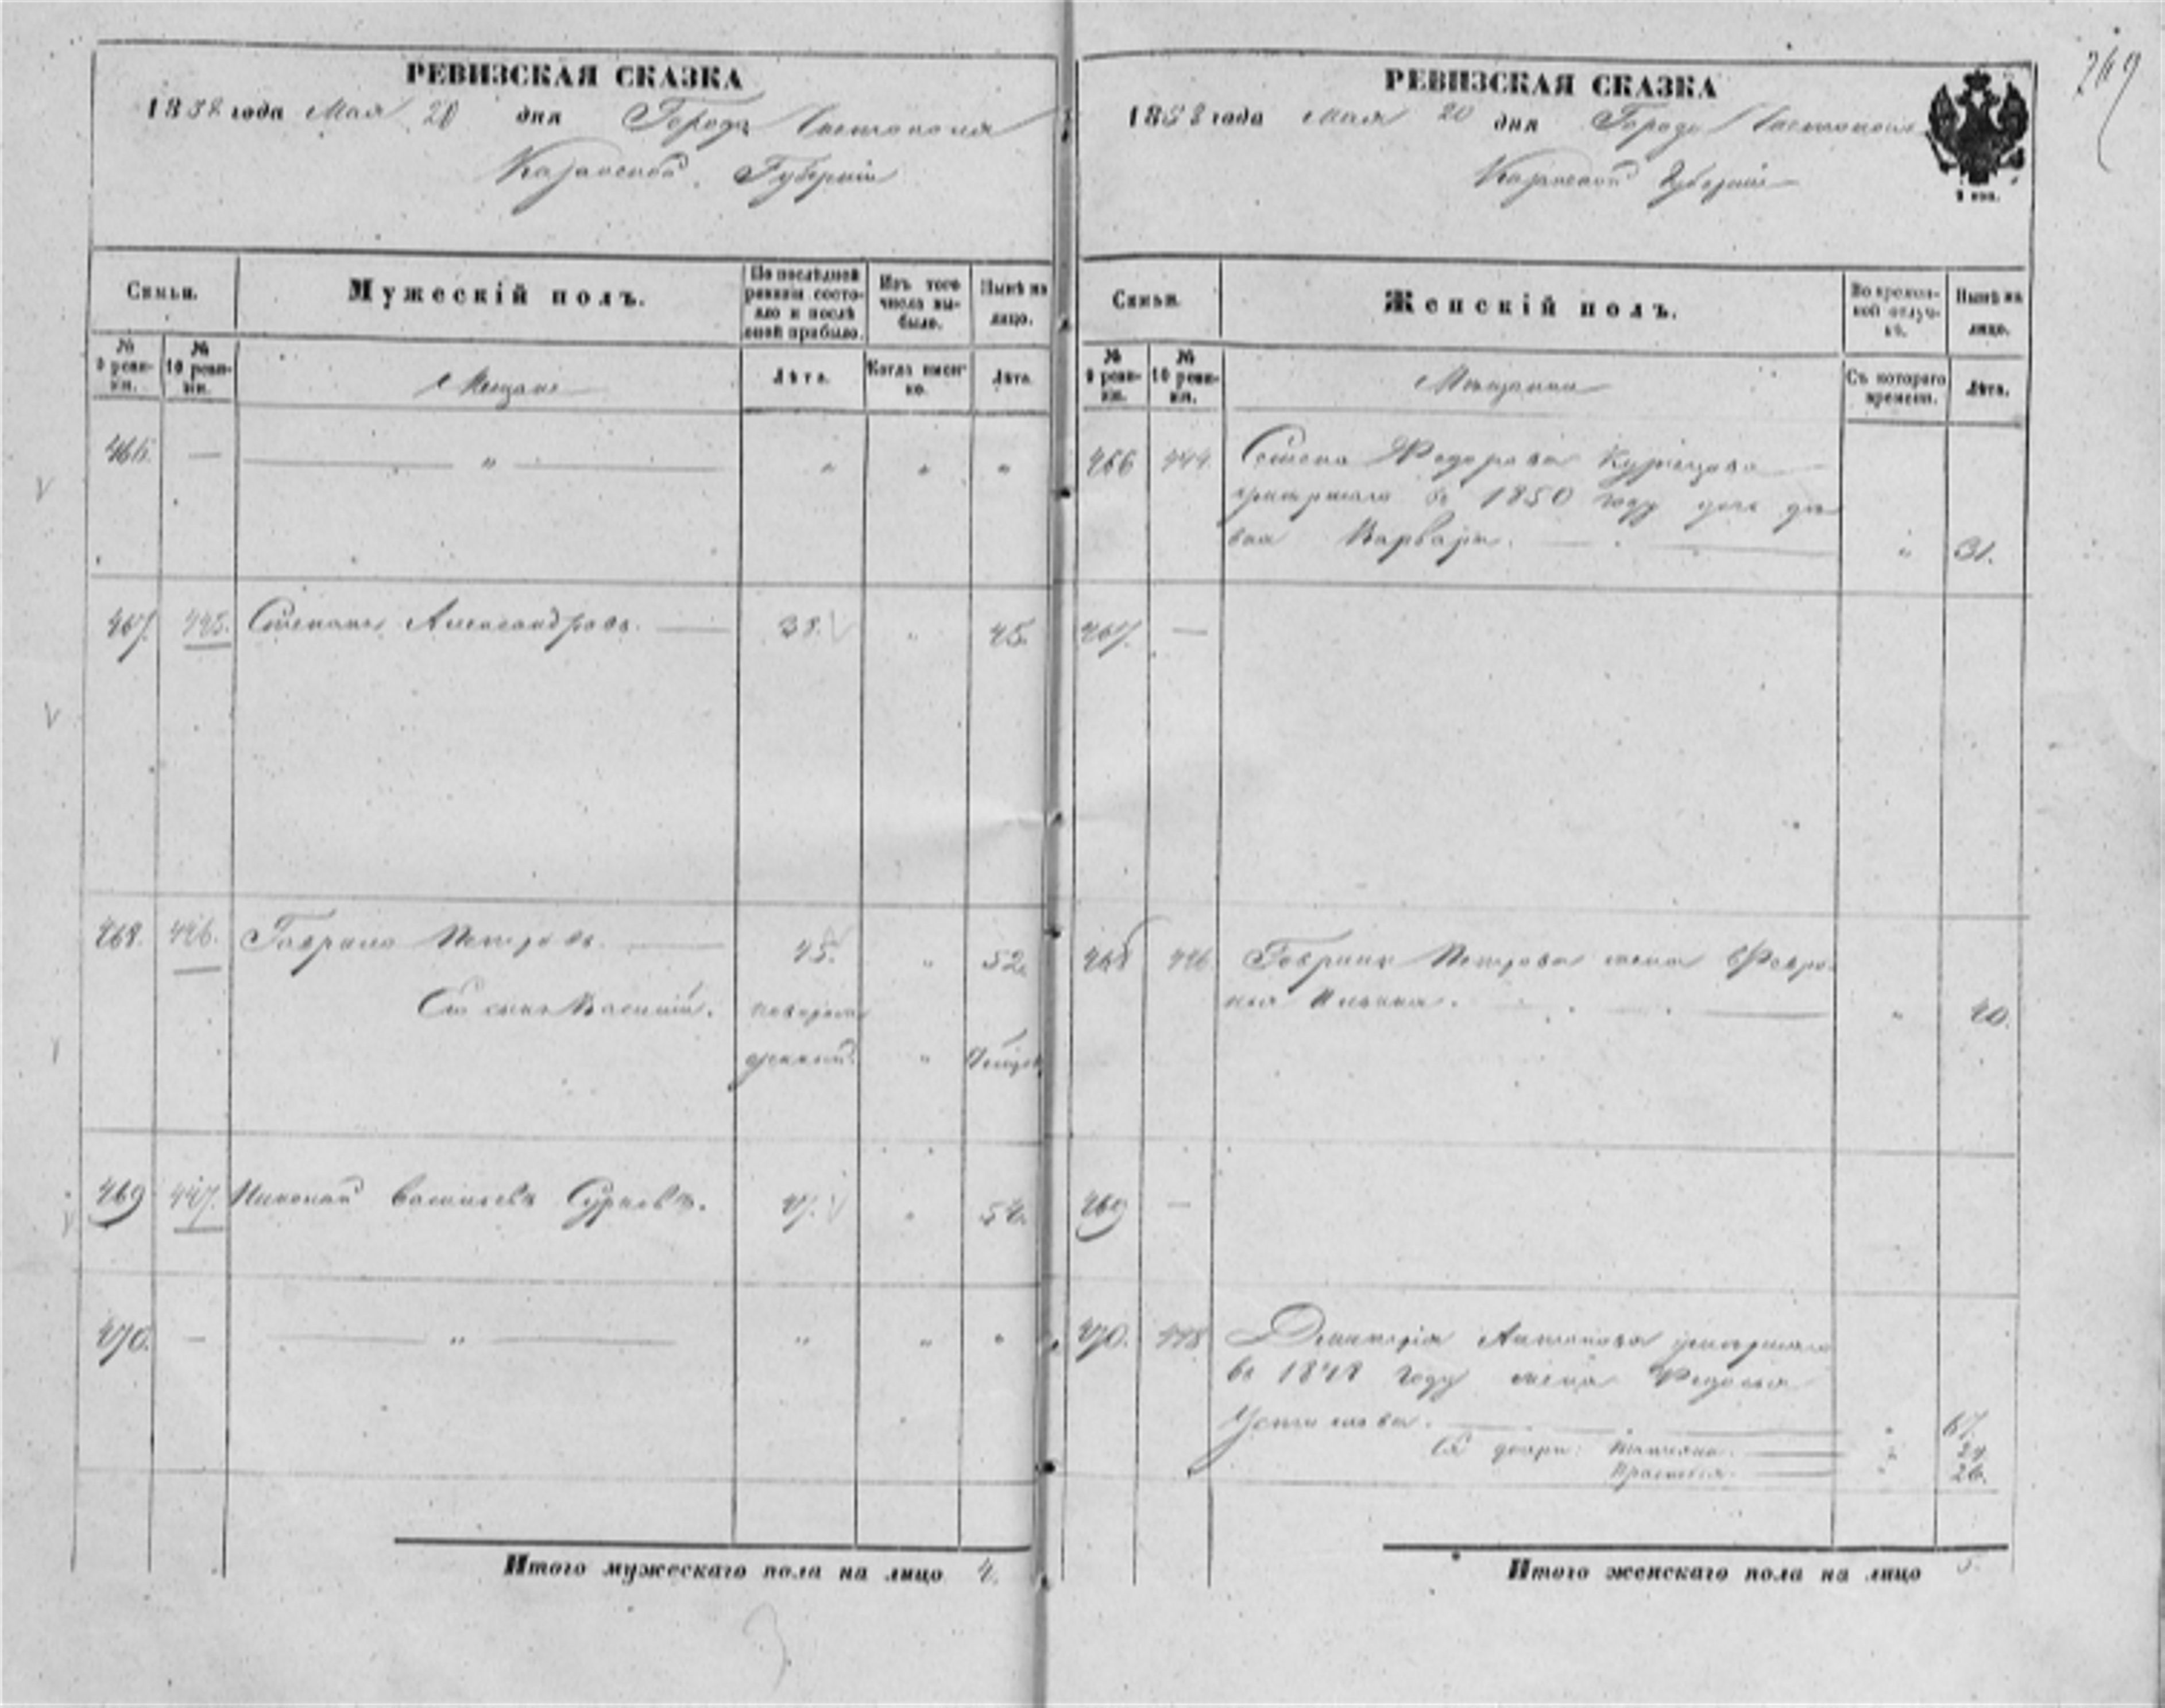 269
РЕВИЗСКАЯ СКАЗКА
1858 года Мая 20 дня Города Чистополя
Казанской Губернии
Семьи.
Мужескій полъ.
По послѣдней ревизіи состояло и послѣ оной прибыло.
Изъ того числа выбыло.
Нынѣ на лицо.
№ 9 ревизіи.
№ 10 ревизіи.
Мещане
Лѣта.
Когда именно.
Лѣта.
466. — — „ — „ „ „
467. 445. Степанъ Александровъ. — 38. „ 45.
468. 446. Гаврило Петровъ. — 45. „ 52.
Его сынъ Василій. новорож
денный. „
469 447. Николай Васильевъ Сурковъ. 47. „ 54.
470. — — „ — „ „ „
Итого мужескаго пола на лицо 4.
РЕВИЗСКАЯ СКАЗКА
1858 года Мая 20 дня Города Чистополя
Казанской Губерніи
2 коп.
Семьи.
Женскій полъ.
Во временной отлучкѣ.
Нынѣ на лицо.
№ 9 ревизіи.
№ 10 ревизіи.
Мещанки
Съ котораго времени.
Лѣта.
466 444. Федорова Кузнецова
умершаго въ 1850 году дочь дѣ
вка Варвара. — „ 31.
467. —
468 446 Гаврилы Петрова жена Февро
нья Ильина. — „ 40.
469 —
470. 448 Дмитрія Антонова умершаго
въ 1848 году жена Федосья
— „ 67.
Ея дочери: Татьяна. — „ 29.
Прасковья. — „ 26.
Итого женскаго пола на лицо 5.